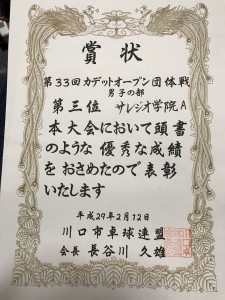 賞状
第33回カデットオープン団体戦
男子の部
第三位 サレジオ学院A
本大会において頭書
のような優秀な成績
をおさめたので表彰
いたします
平成29年2月12日
川口市卓球連盟
会長 長谷川 久雄